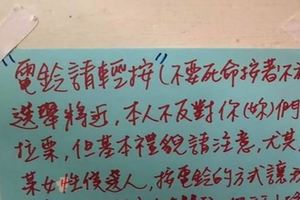 "電鈴請輕按"(不要死命按著不
選舉將近,本人不反對你(妳)們
拉票,但基本禮貌請注意,尤其
某女性候選人,按電鈴的方式讓